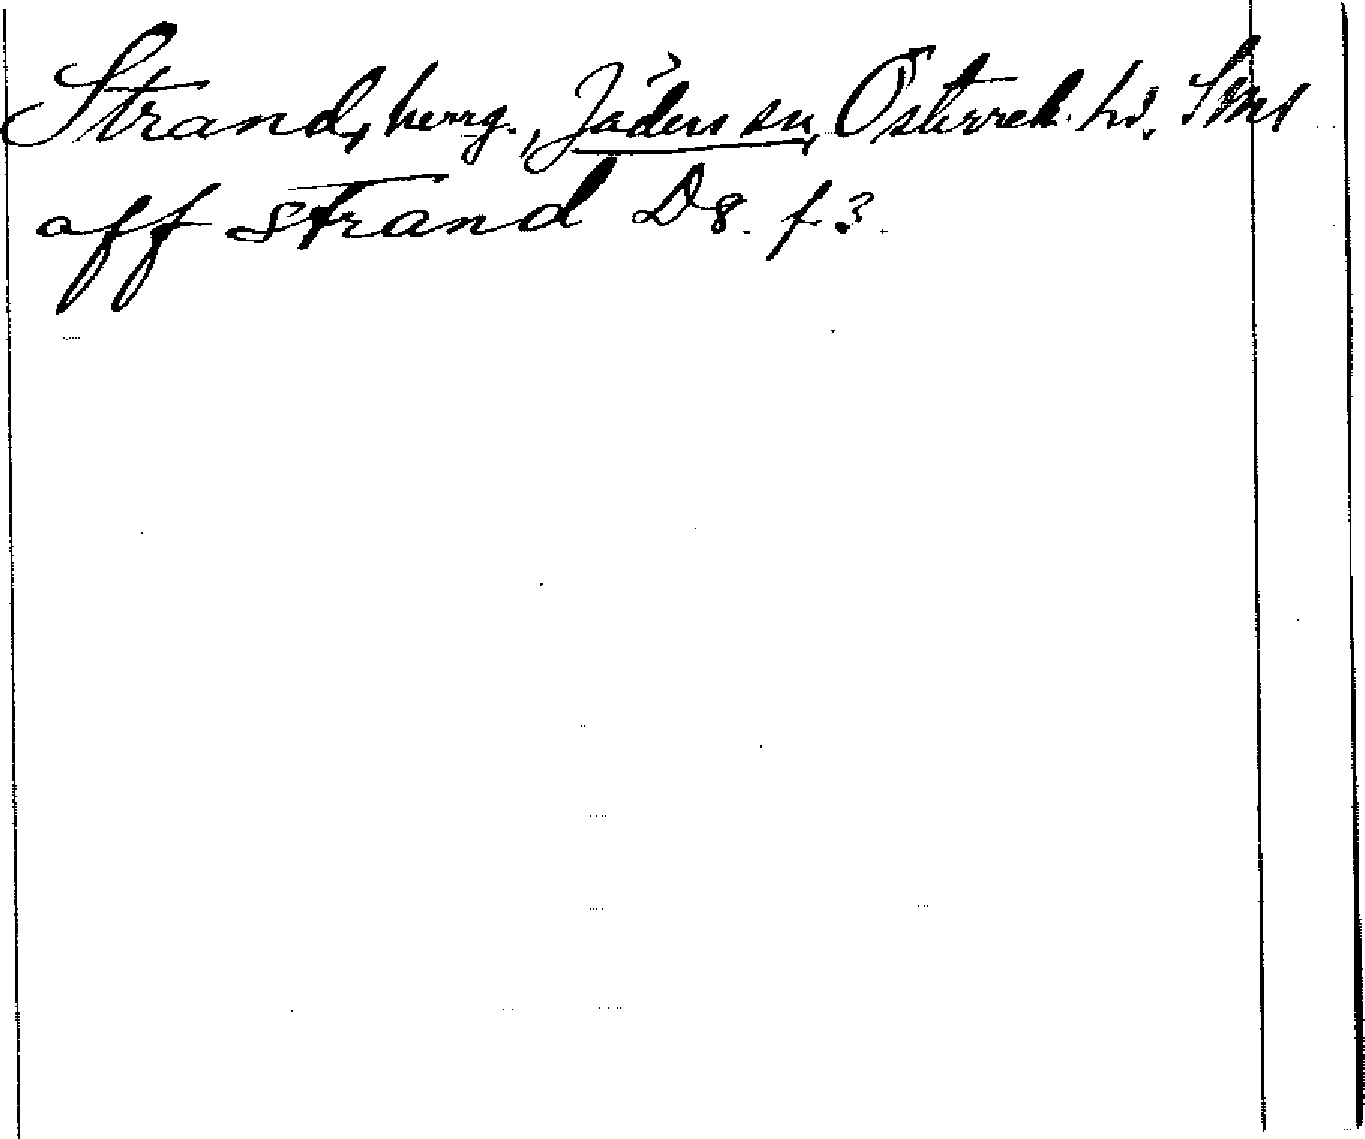 Strand, herrg., Jäders sn, Österrek. hd. Sml
aff strand D8. f 3.